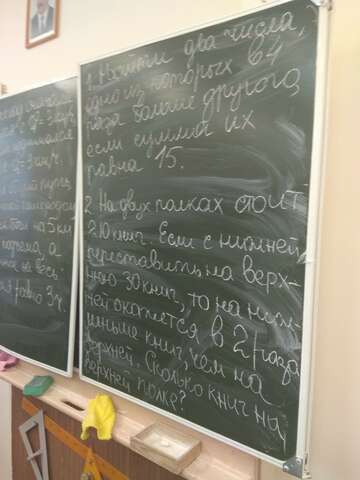 1. Найти два числа,
одно из которых в 4
раза больше другого,
если сумма их
равна 15.
2. На двух полках стоит
210 книг. Если с нижней
переставить на верх-
нюю 30 книг, то на ниж-
ней окажется в 2 раза
меньше книг, чем на
верхней. Сколько книг на
верхней полке?
на 5 км
а
за весь
равно 3ч.